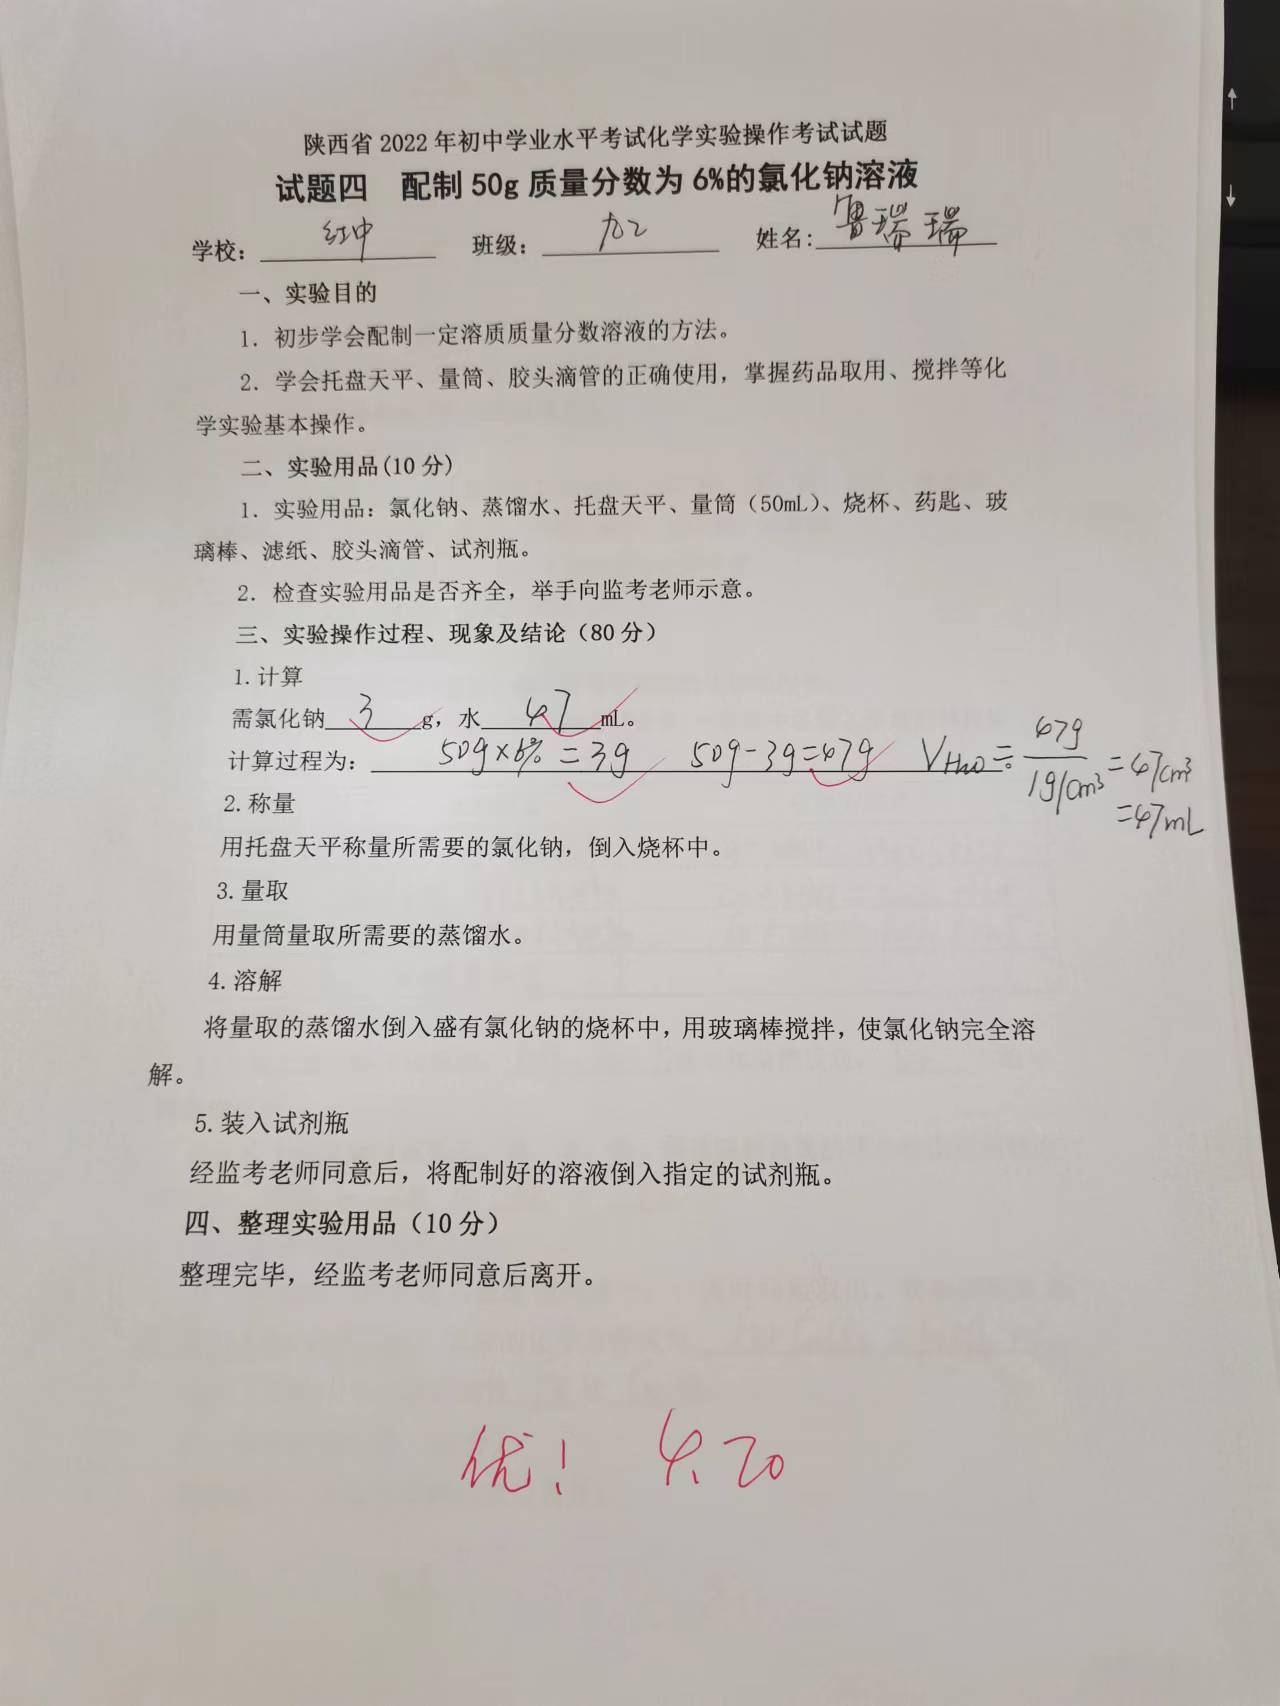 陕西省 2022 年初中学业水平考试化学实验操作考试试题
试题四 配制 50g 质量分数为 6%的氯化钠溶液
学校：红中 班级：九2 姓名：鲁瑞瑞
一、实验目的
1. 初步学会配制一定溶质质量分数溶液的方法。
2. 学会托盘天平、量筒、胶头滴管的正确使用，掌握药品取用、搅拌等化
学实验基本操作。
二、实验用品(10 分)
1. 实验用品：氯化钠、蒸馏水、托盘天平、量筒（50mL）、烧杯、药匙、玻
璃棒、滤纸、胶头滴管、试剂瓶。
2. 检查实验用品是否齐全，举手向监考老师示意。
三、实验操作过程、现象及结论（80 分）
1. 计算
需氯化钠 3 g，水 47 mL。
计算过程为： 50g×6%=3g 50g-3g=47g V H₂O = 47g / 1g/cm³ = 47cm³
=47mL
2. 称量
用托盘天平称量所需要的氯化钠，倒入烧杯中。
3. 量取
用量筒量取所需要的蒸馏水。
4. 溶解
将量取的蒸馏水倒入盛有氯化钠的烧杯中，用玻璃棒搅拌，使氯化钠完全溶
解。
5. 装入试剂瓶
经监考老师同意后，将配制好的溶液倒入指定的试剂瓶。
四、整理实验用品（10 分）
整理完毕，经监考老师同意后离开。
优！ 4.20